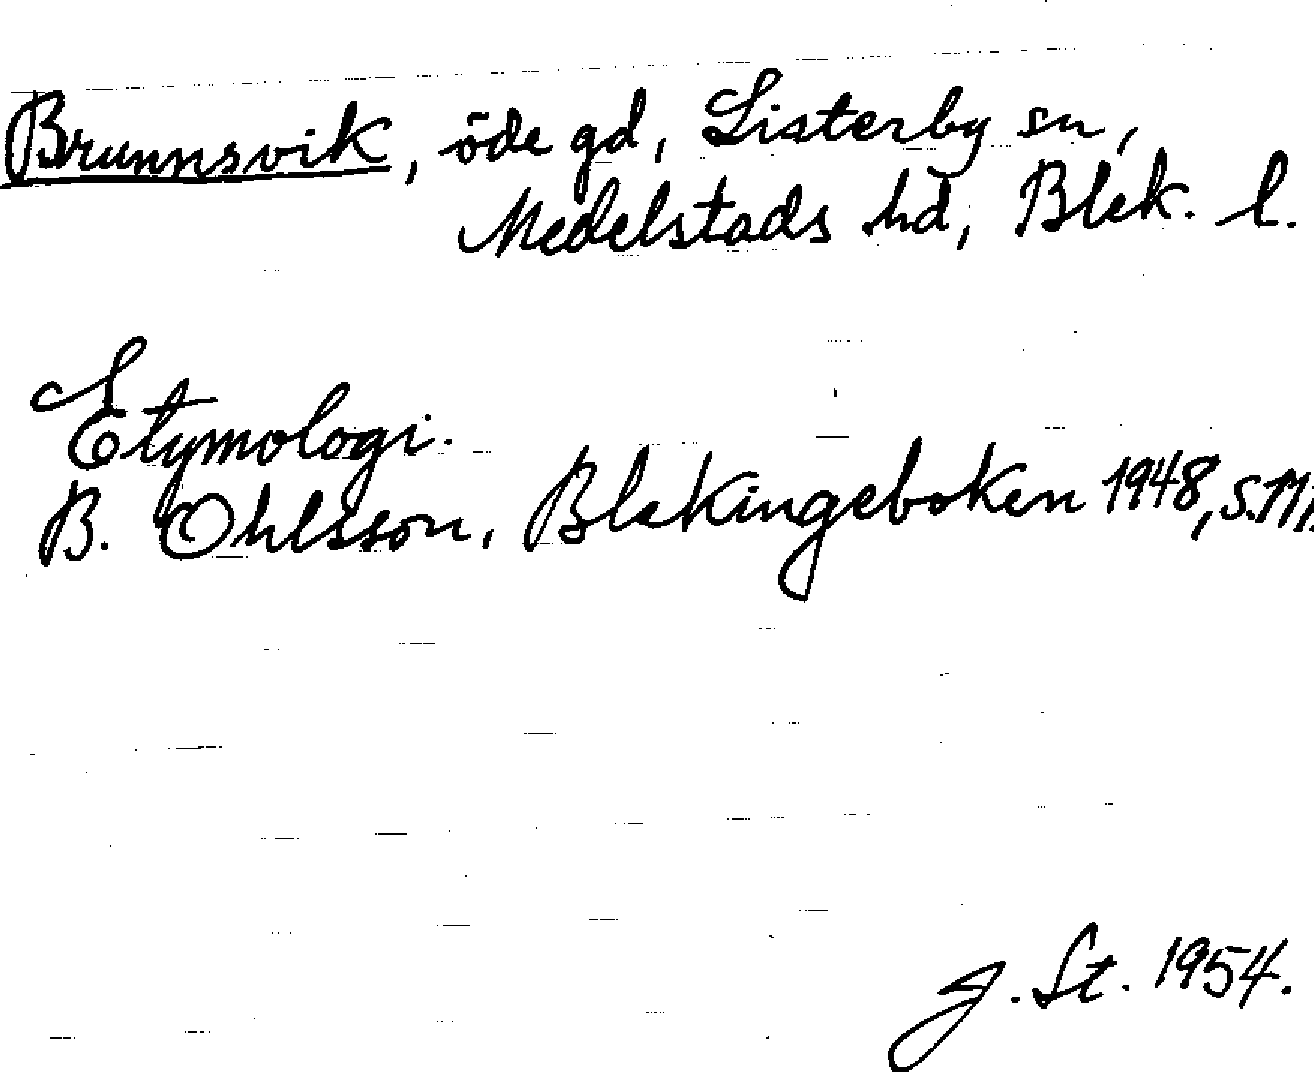 Brunnsvik, öde gd, Listerby sn,
Medelstads hd, Blek. l.
Etymologi.
B. Ohlsson, Blekingeboken 1948,
J. St. 1954.